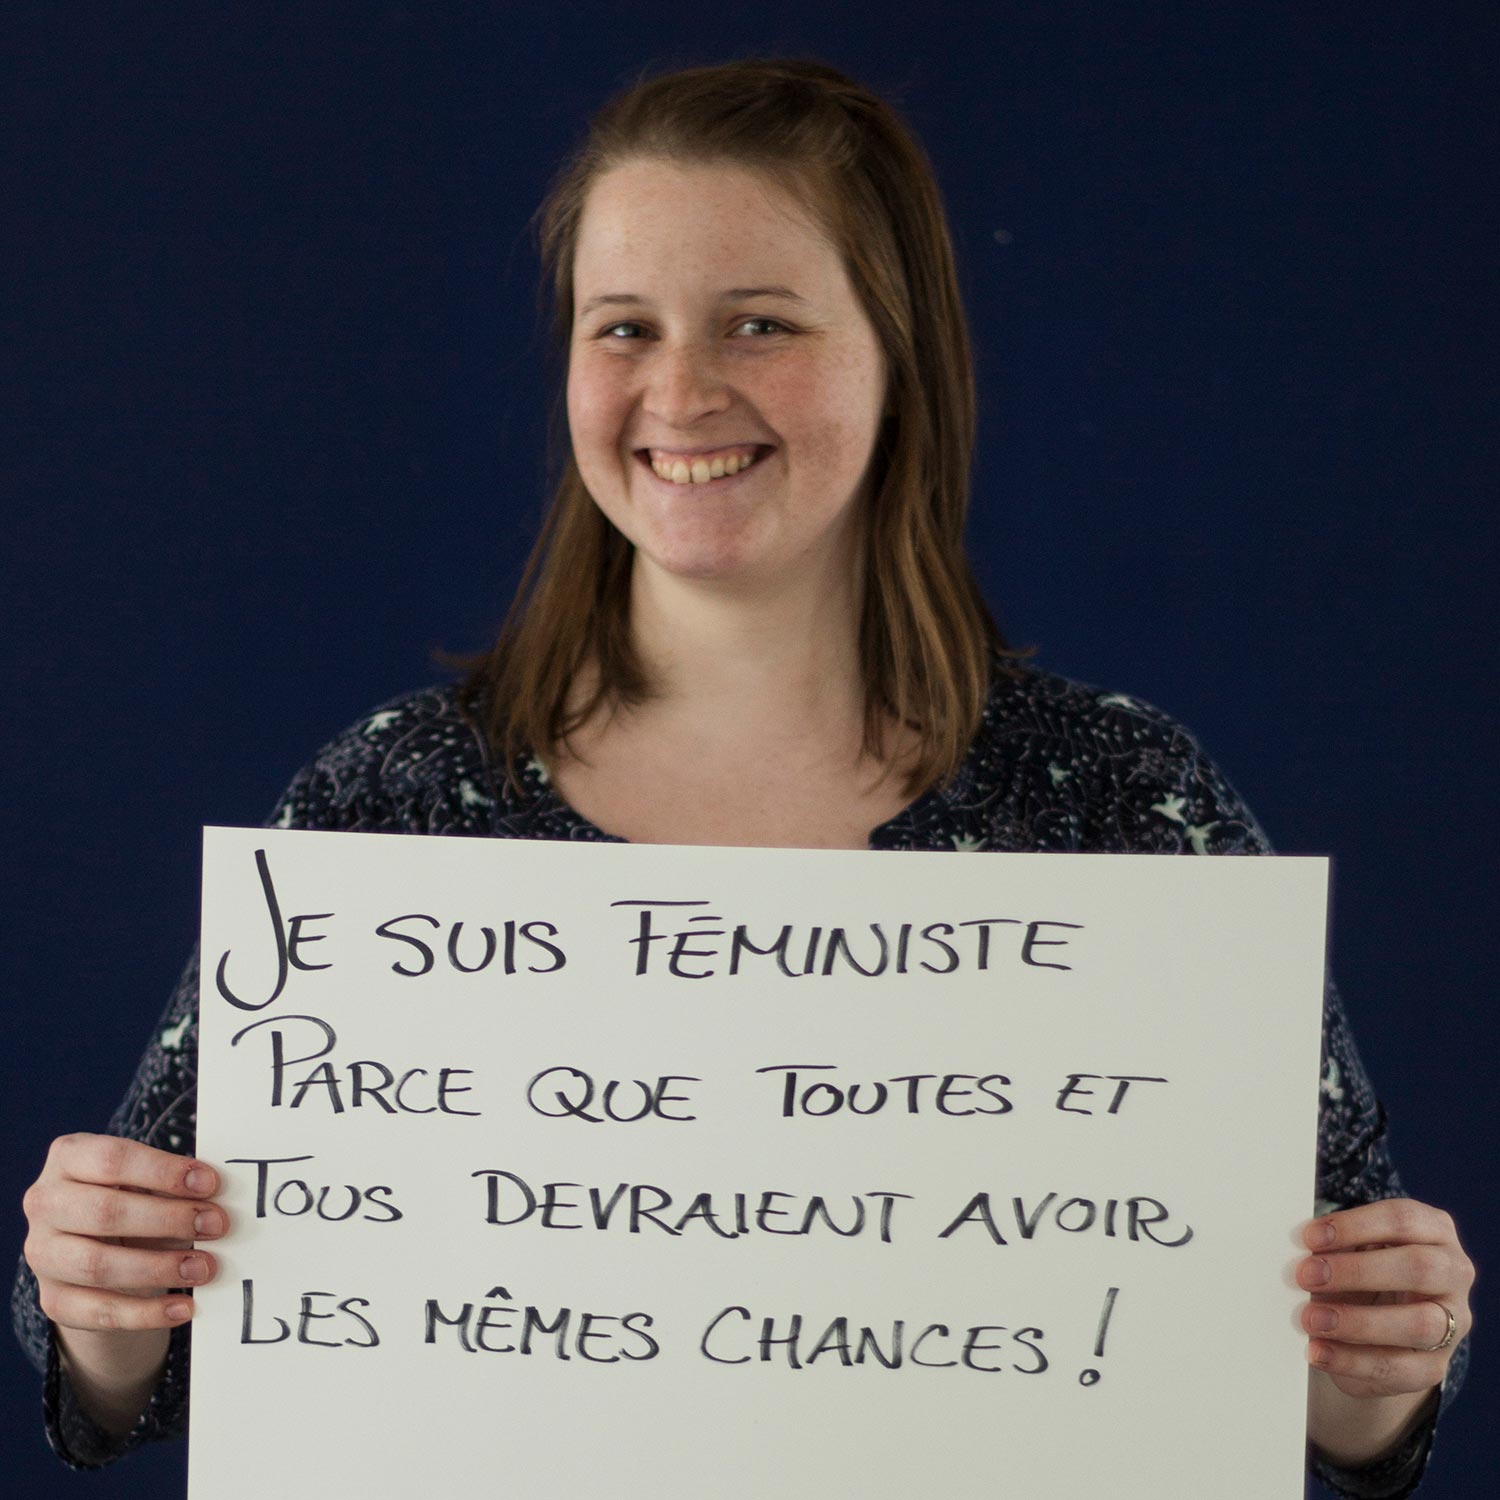 JE SUIS FÉMINISTE
PARCE QUE TOUTES ET
TOUS DEVRAIENT AVOIR
LES MÊMES CHANCES !